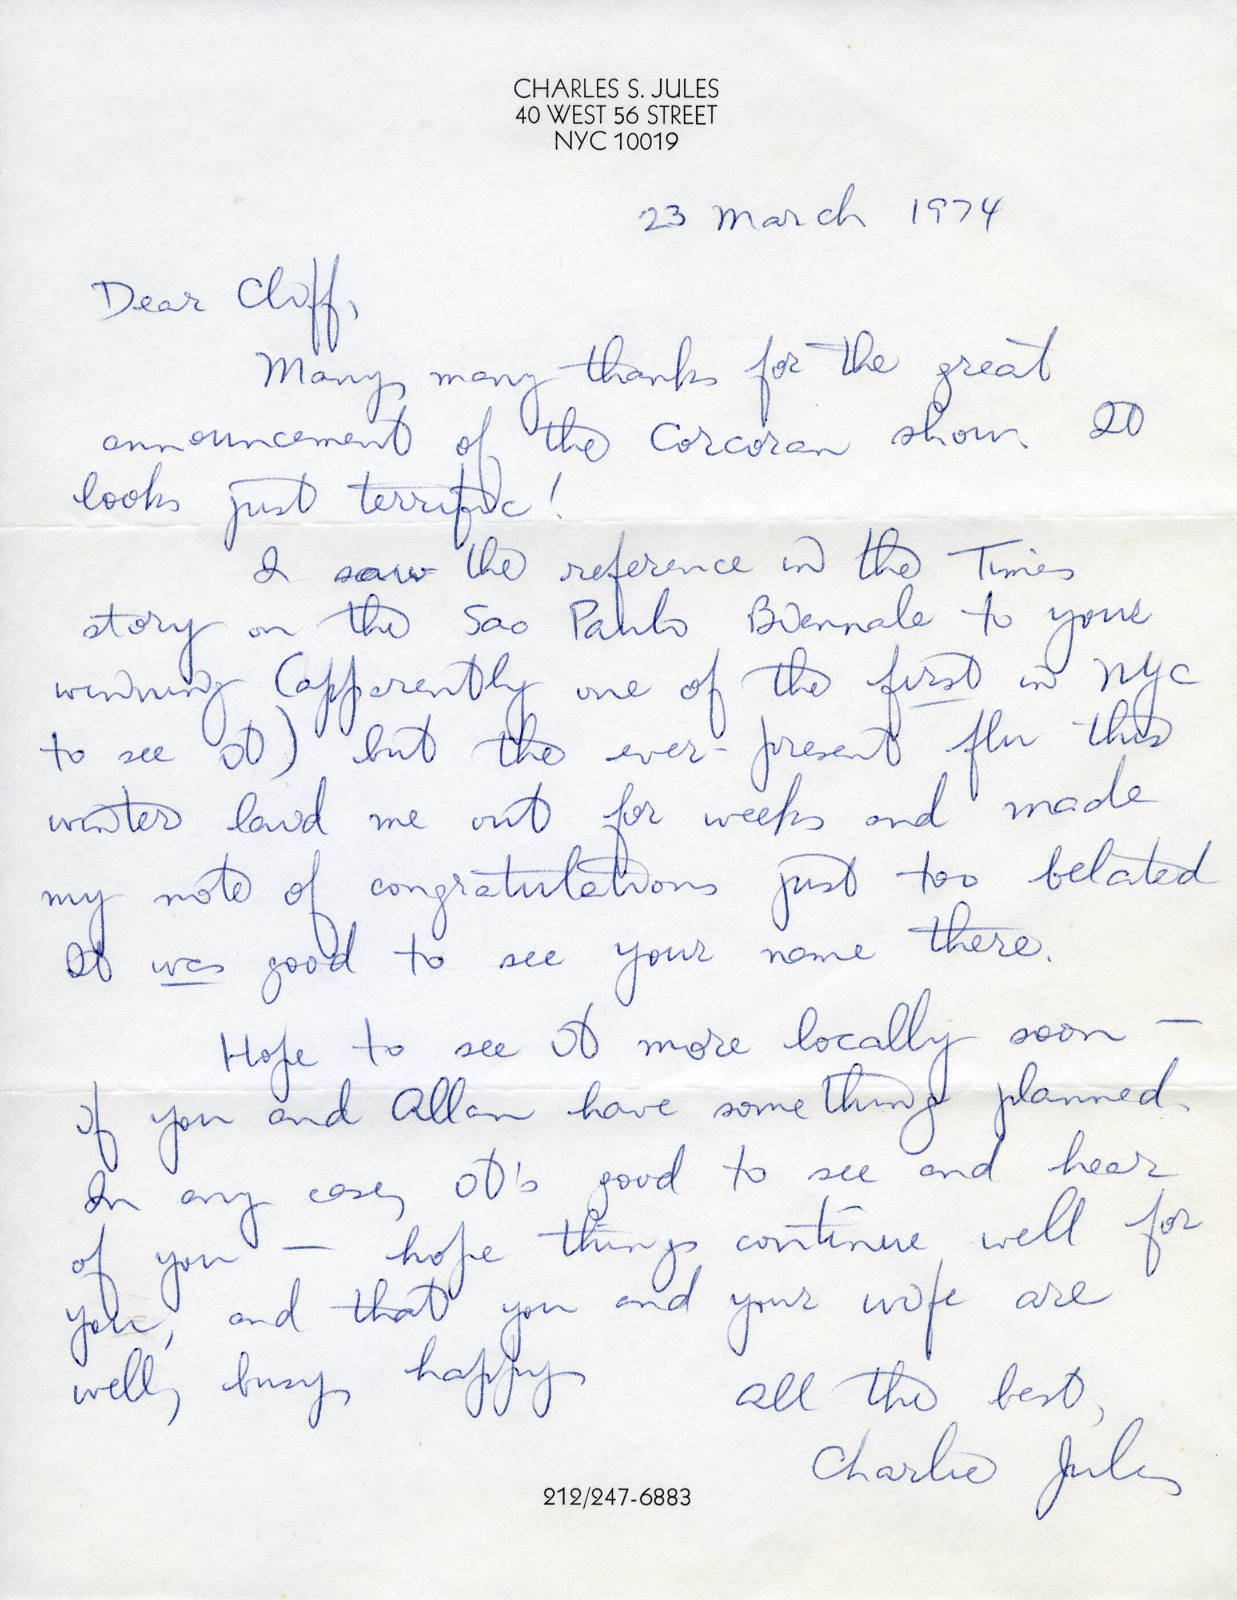 CHARLES S. JULES
40 WEST 56 STREET
NYC 10019
23 March 1974
Dear Cliff,
Many, many thanks for the great
announcement of the Corcoran show. It
looks just terrific!
I saw the reference in the Times
story on the Sao Paulo Biennale to your
winning (apparently one of the first in NYC
to see it) but the ever-present flu this
winter laid me out for weeks and made
my note of congratulations just too belated
It was good to see your name there.
Hope to see it more locally soon —
if you and Allan have something planned.
In any case, it's good to see and hear
of you — hope things continue well for
you, and that you and your wife are
well, busy, happy
All the best,
Charlie Jules
212/247-6883